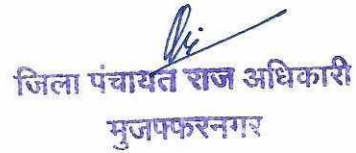 जिला पंचायत राज अधिकारी
मुजफ्फरनगर